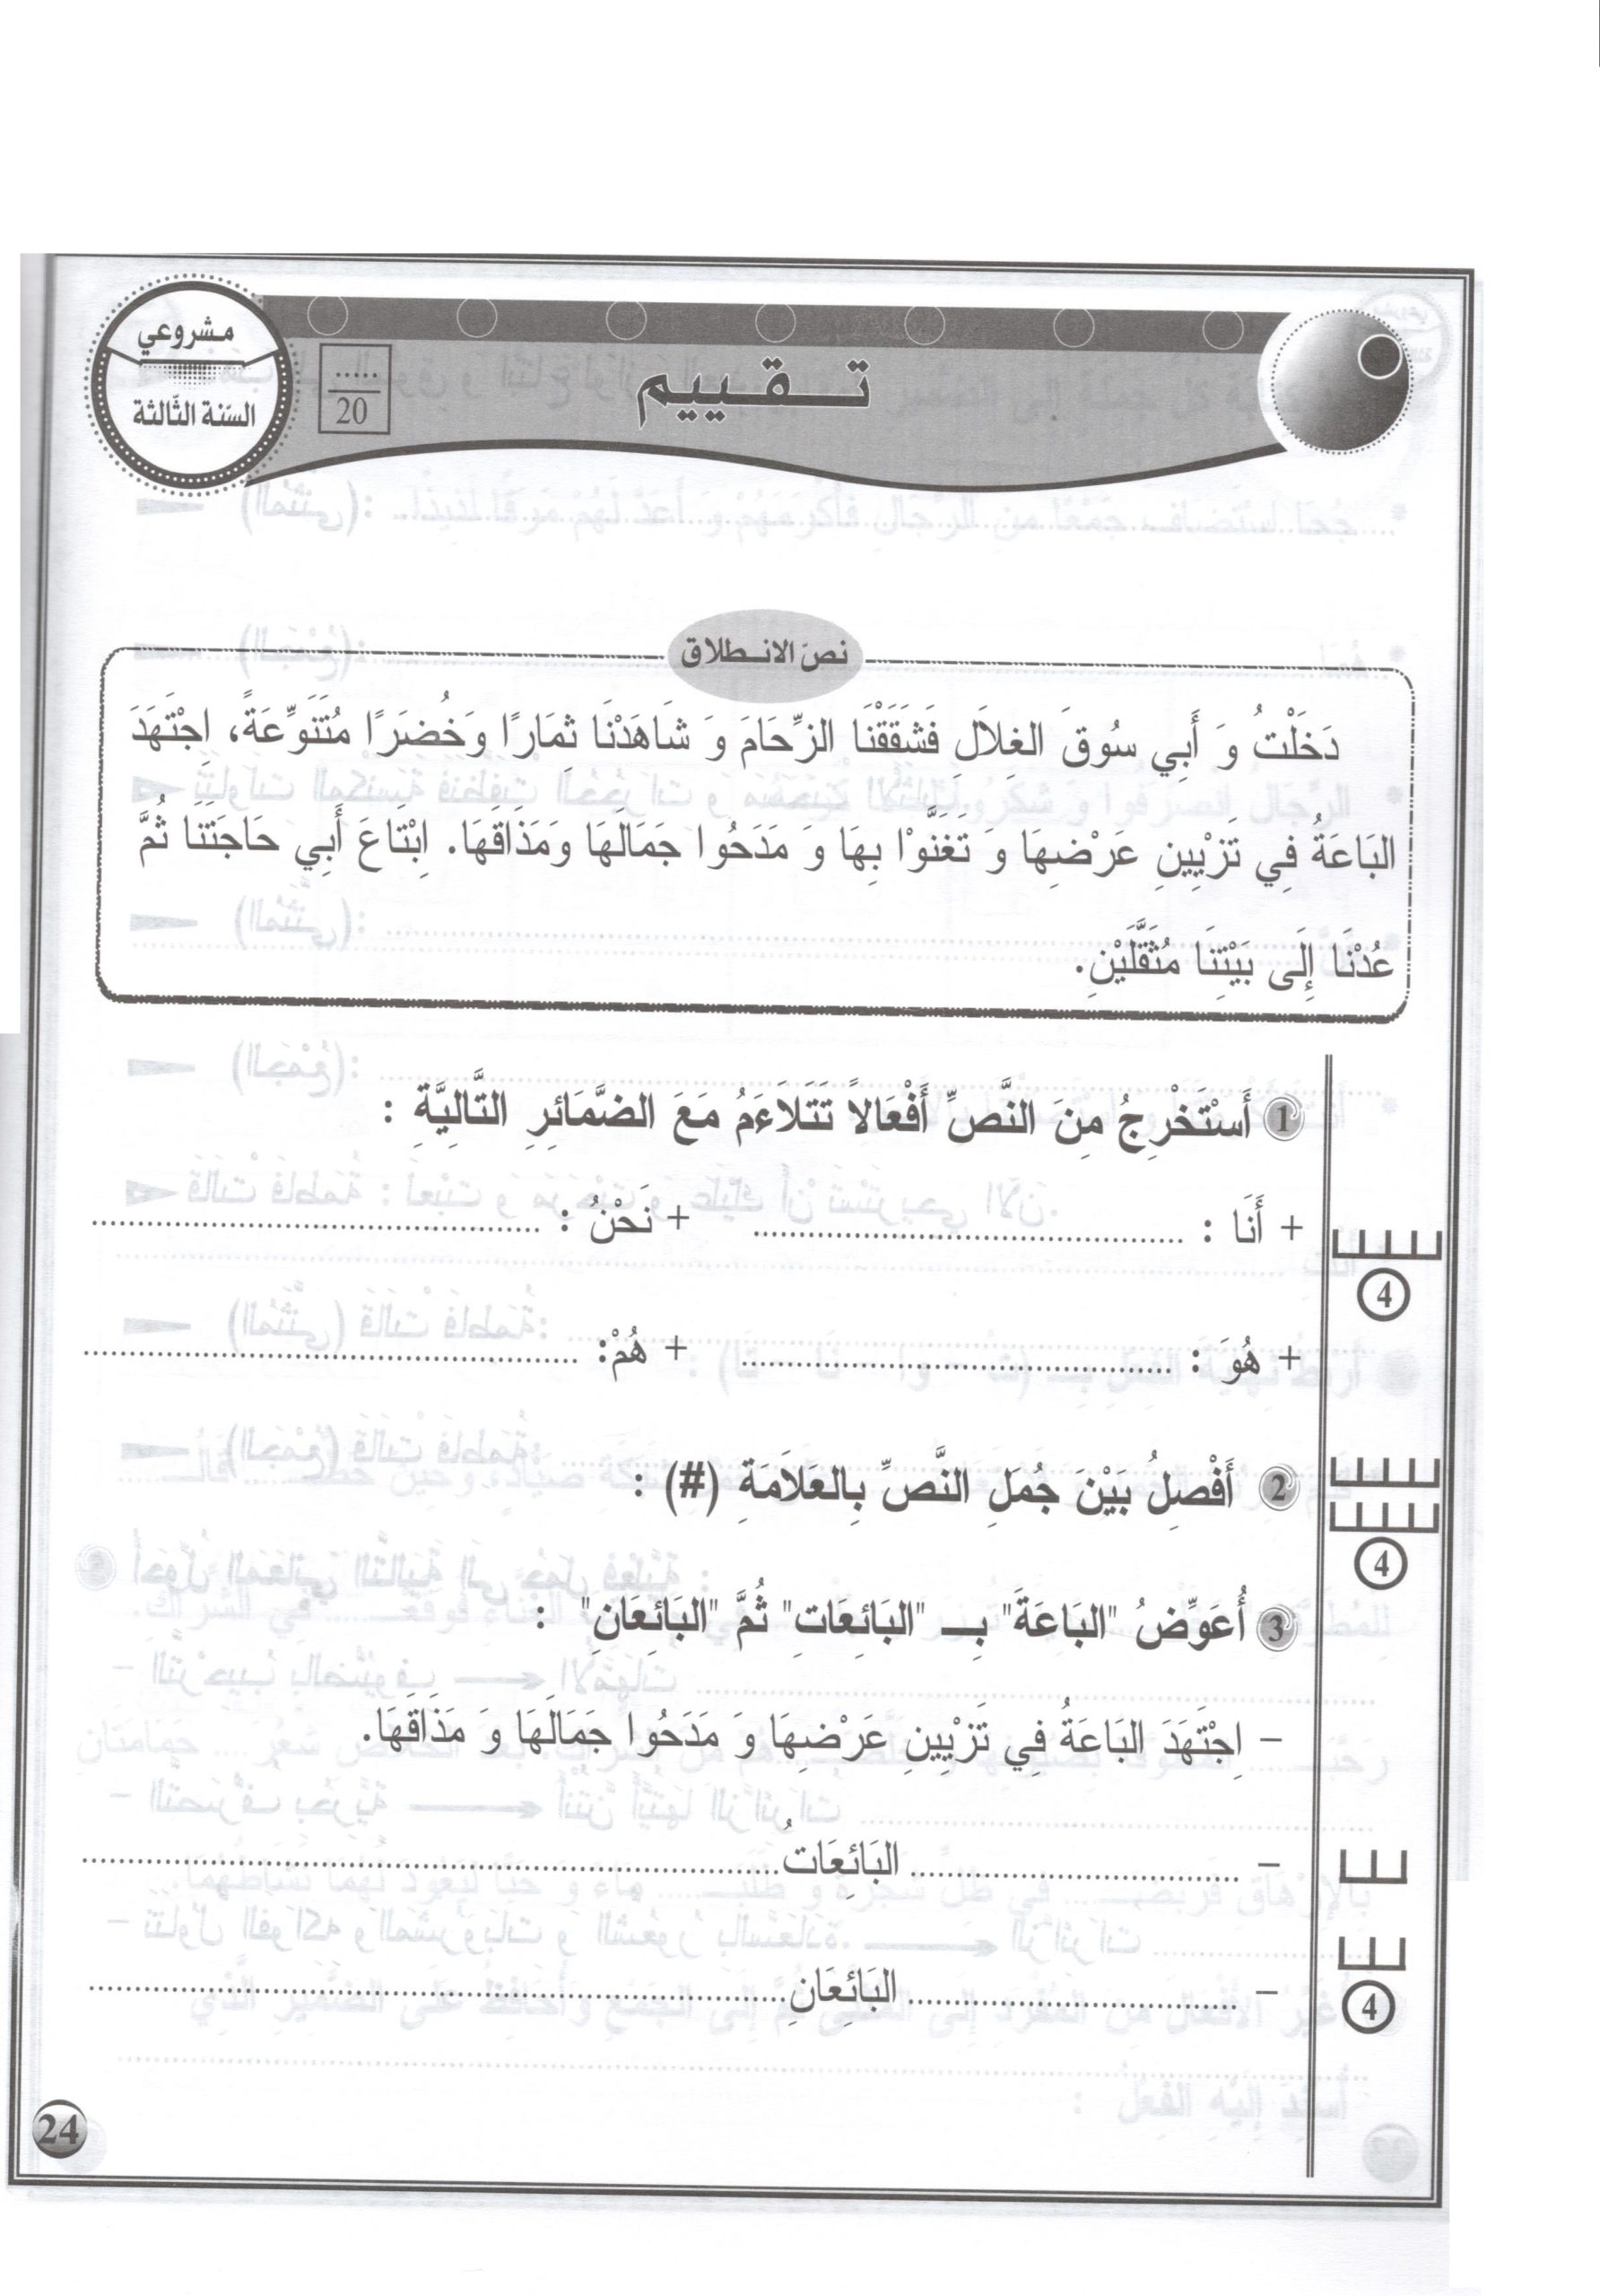 مشروعي
السّنة الثّالثة
.....
20
تـقـييم
نصّ الانـطلاق
دَخَلْتُ وَ أَبِي سُوقَ الغِلاَلِ فَشَقَقْنَا الزِّحَامَ وَ شَاهَدْنَا ثِمَارًا وَخُضَرًا مُتَنَوِّعَةً، اِجْتَهَدَ
البَاعَةُ فِي تَزْيِينِ عَرْضِهَا وَ تَغَنَّوْا بِهَا وَ مَدَحُوا جَمَالَهَا وَمَذَاقَهَا. اِبْتَاعَ أَبِي حَاجَتَنَا ثُمَّ
عُدْنَا إِلَى بَيْتِنَا مُثَقَّلَيْنِ.
1 أَسْتَخْرِجُ مِنَ النَّصِّ أَفْعَالاً تَتَلاَءَمُ مَعَ الضَّمَائِرِ التَّالِيَّةِ :
+ أَنَا : ........................................ + نَحْنُ : ........................................
4
+ هُوَ : ........................................ + هُمْ: ........................................
2 أَفْصِلُ بَيْنَ جُمَلِ النَّصِّ بِالعَلاَمَةِ (#) :
4
3 أُعَوِّضُ "البَاعَةَ" بِـ "البَائِعَاتِ" ثُمَّ "البَائِعَانِ" :
– اِجْتَهَدَ البَاعَةُ فِي تَزْيِينِ عَرْضِهَا وَ مَدَحُوا جَمَالَهَا وَ مَذَاقَهَا.
– ........................................ البَائِعَاتُ........................................
– ........................................ البَائِعَانِ........................................
4
24